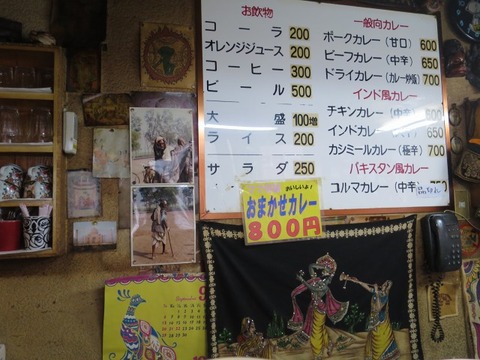 お飲物
コーラ 200
オレンジジュース 200
コーヒー 300
ビール 500
大盛 100増
ライス 200
サラダ 250
一般向カレー
ポークカレー(甘口) 600
ビーフカレー(中辛) 650
ドライカレー(カレー炒飯) 700
インド風カレー
チキンカレー(中辛) 600
インドカレー 650
カシミールカレー(極辛) 700
パキスタン風カレー
コルマカレー(中辛)
おいしいよ!
おまかせカレー
800円
September 9